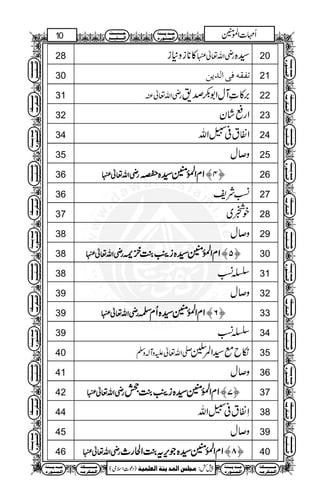 اُمہات المؤمنین 10
20 سیدہ رضی اللہ تعالیٰ عنہا کا ناز و نیاز 28
21 تفقہ فی الدین 30
22 برکاتِ آلِ ابوبکر صدیق رضی اللہ تعالیٰ عنہ 31
23 ارفع شان 32
24 انفاق فی سبیل اللہ 34
25 وصال 35
26 ﴿۴﴾ ام المؤمنین سیدہ حفصہ رضی اللہ تعالیٰ عنہا 36
27 نسب شریف 36
28 خوشخبری 37
29 وصال 38
30 ﴿۵﴾ ام المؤمنین سیدہ زینب بنت خزیمہ رضی اللہ تعالیٰ عنہا 38
31 سلسلہ نسب 38
32 وصال 39
33 ﴿۶﴾ ام المؤمنین سیدہ اُم سلمہ رضی اللہ تعالیٰ عنہا 39
34 سلسلہ نسب 39
35 نکاح مع سید المرسلین صلی اللہ تعالیٰ علیہ واٰلہ وسلم 40
36 وصال 41
37 ﴿۷﴾ ام المؤمنین سیدہ زینب بنت جحش رضی اللہ تعالیٰ عنہا 42
38 اِنفاق فی سبیل اللہ 44
39 وصال 45
40 ﴿۸﴾ ام المؤمنین سیدہ جویریہ بنت الحارث رضی اللہ تعالیٰ عنہا 46
پیش کش: مجلس المدینة العلمية (دعوتِ اسلامی)